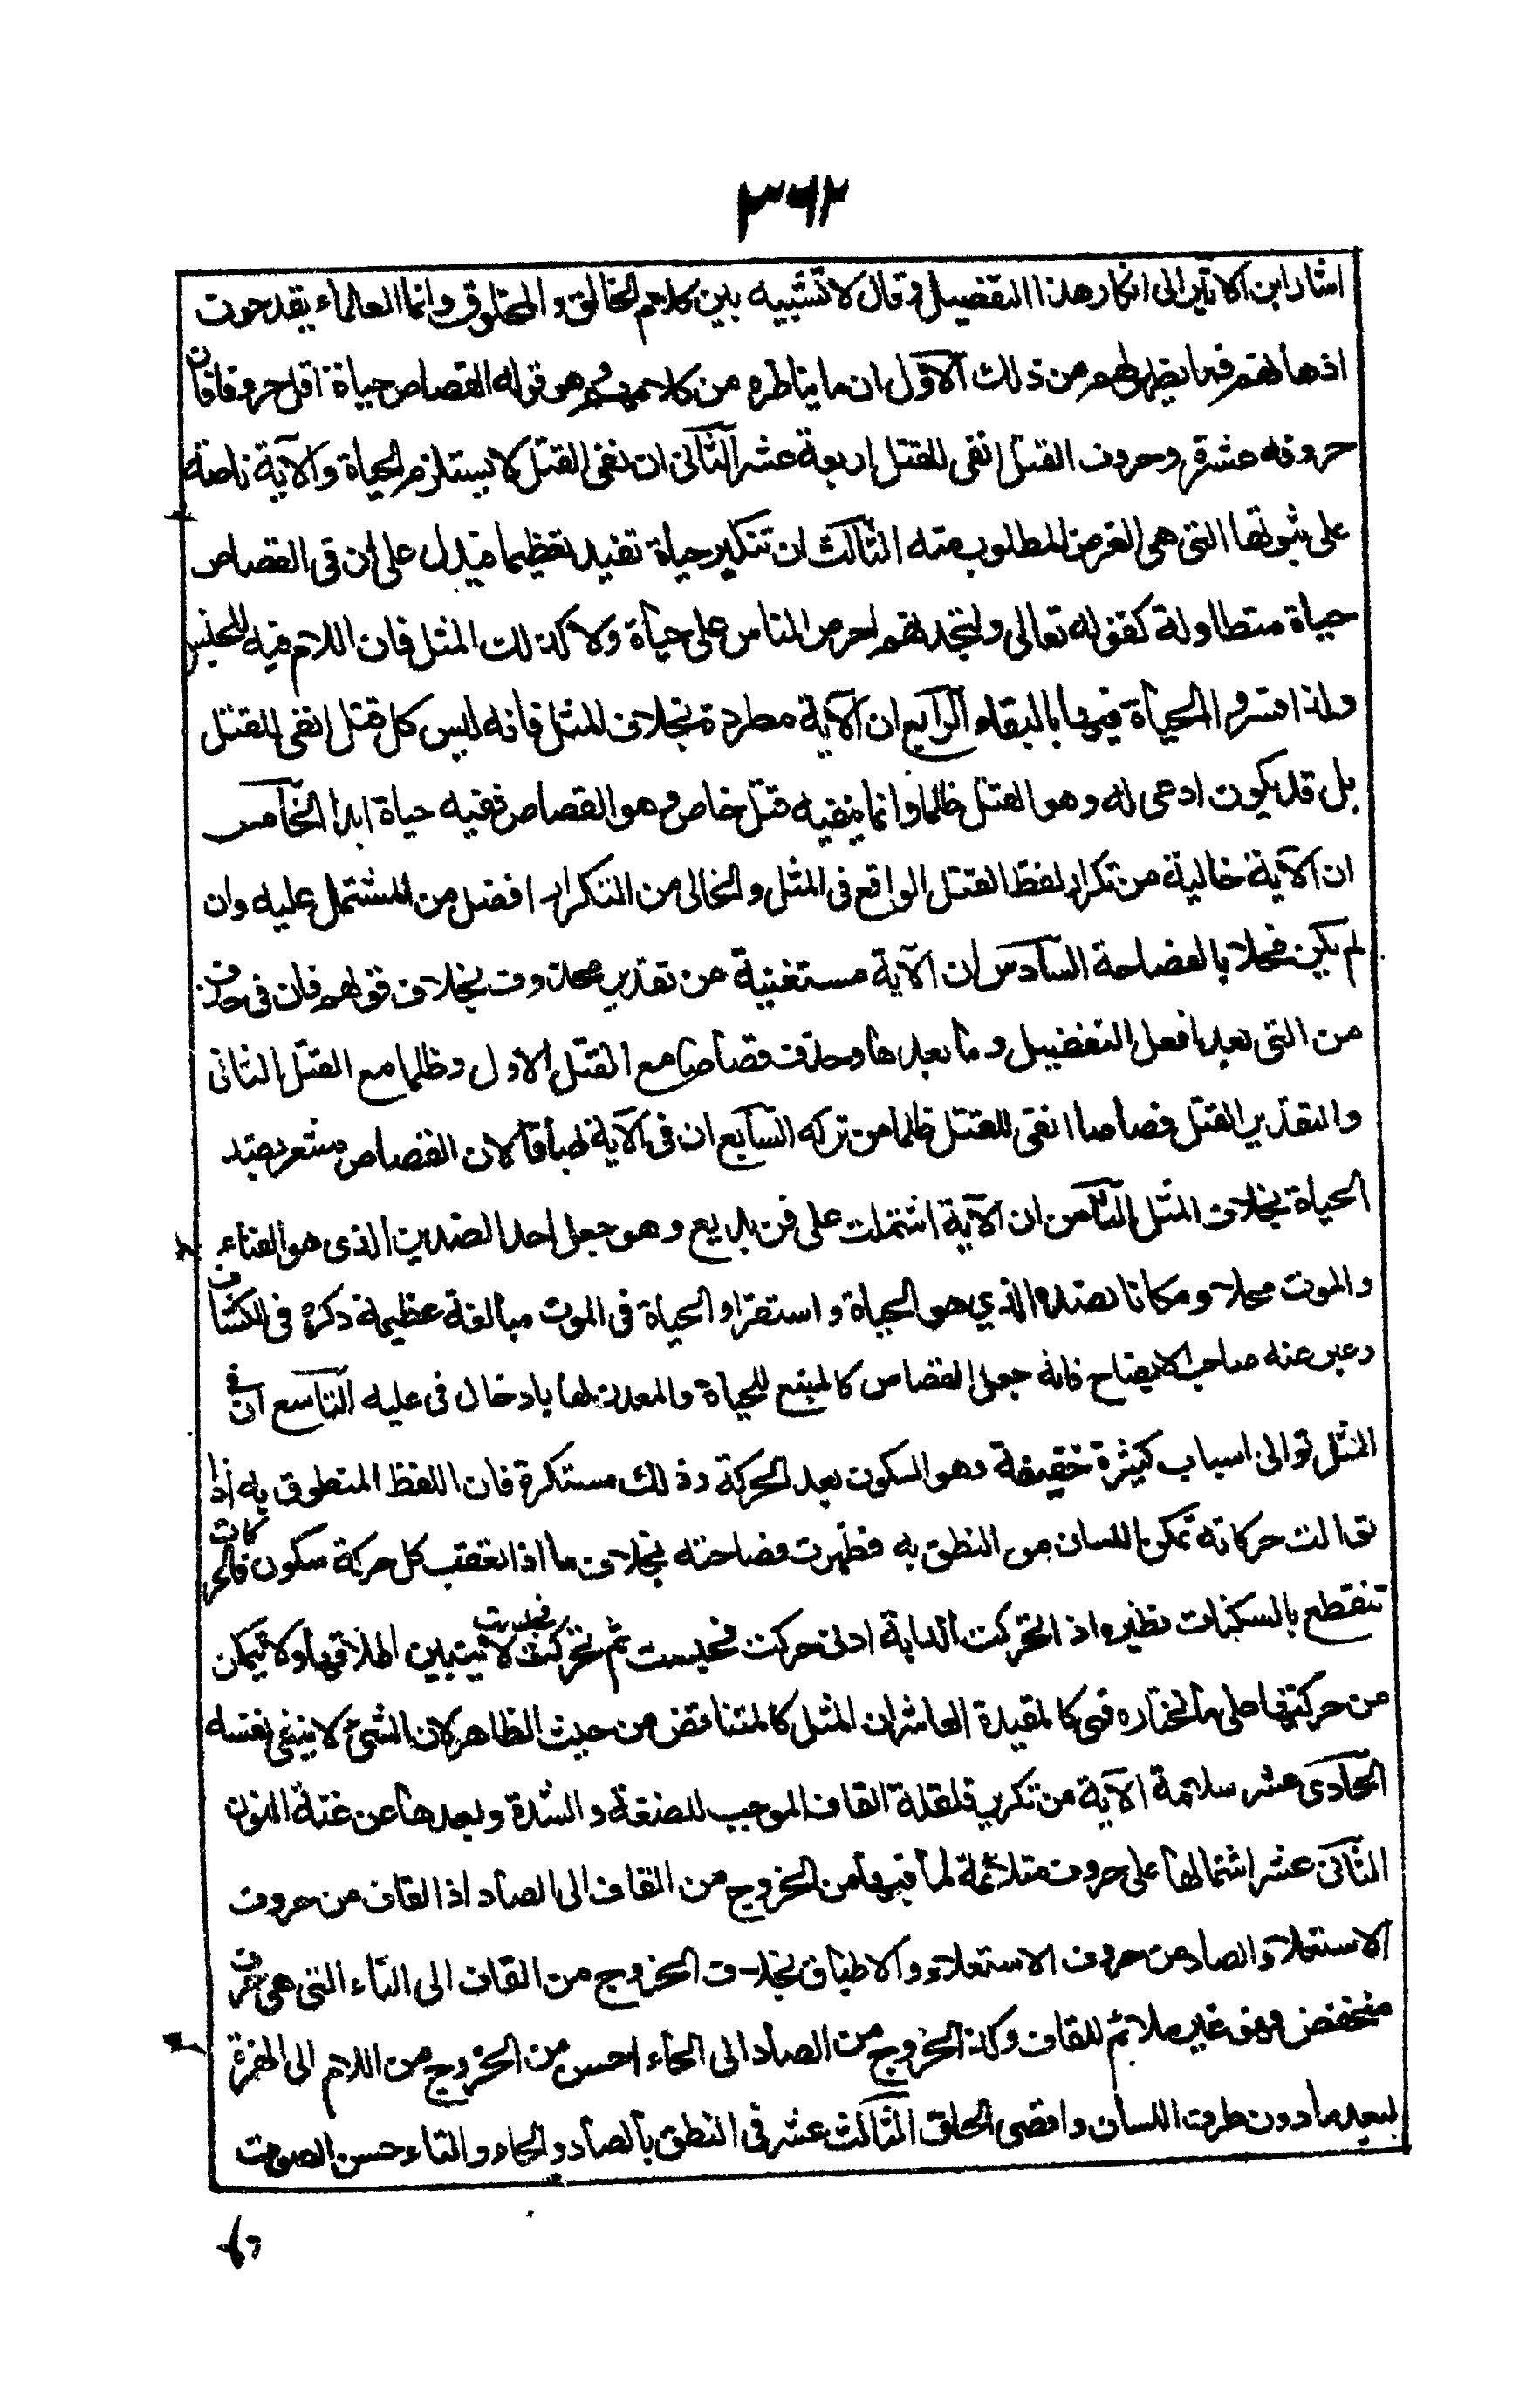 ٣٦٢
اشار ابن الاثير الى انكار هذا التفضيل وقال لا تشبيه بين كلام الخالق والمخلوق وانما العلماء يقدحون
اذهانهم فيما يظهر لهم من ذلك الآول ان ما يناظره من كلامهم وهو قوله القصاص حياة اقل حروفا فان
حروفه عشرة وحروف القتل انفى للقتل اربعة عشر الثآنى ان نفى القتل لا يستلزم الحياة والآية ناصة
على ثبوتها التى هى الغرض المطلوب منه الثآلث ان تنكير حياة تفيد تعظيما فيدل على ان فى القصاص
حياة متطاولة كقوله تعالى ولتجدنهم احرص الناس على حياة ولا كذلك المثل فان اللام فيه للجنس
ولذا فسروا الحياة فيها بالبقاء الرآبع ان الآية مطردة بخلاف المثل فانه ليس كل قتل انفى للقتل
بل قد يكون ادعى له وهو القتل ظلما وانما ينفيه قتل خاص وهو القصاص ففيه حياة ابدا الخآمس
ان الآية خالية من تكرار لفظ القتل الواقع فى المثل والخالى من التكرار افضل من المشتمل عليه وان
لم يكن مخلا بالفصاحة السآدس ان الآية مستغنية عن تقدير محذوف بخلاف قولهم فان فى حذف
من التى بعد افعل التفضيل وما بعدها وحذف قصاصا مع القتل الاول وظلما مع القتل الثانى
والتقدير القتل قصاصا انفى للقتل ظلما من تركه السآبع ان فى الآية طباقا لان القصاص مشعر بضد
الحياة بخلاف المثل الثآمن ان الآية اشتملت على فن بديع وهو جعل احد الضدين الذى هو الفناء
والموت محلا ومكانا لضده الذي هو الحياة واستقرار الحياة فى الموت مبالغة عظيمة ذكره فى الكشاف
وعبر عنه صاحب الايضاح فانه جعل القصاص كالمنبع للحياة والمعدن لها بادخال فى عليه التآسع ان فى
المثل توالى اسباب كثيرة خفيفة وهو السكون بعد الحركة وذلك مستكره فان اللفظ المنطوق به اذا
توالت حركاته تمكن اللسان من النطق به فظهرت فصاحته بخلاف ما اذا تعقب كل حركة سكون فالحركات
تنقطع بالسكنات نظيره اذا تحركت الدابة ادنى حركت فحبست ثم تحركت فحبست لا يتبين اطلاقها ولا يتمكن
من حركتها على ما تختاره فهى كالمقيدة العاشر ان المثل كالمتناقض من حيث الظاهر لان الشئ لا ينفى نفسه
الحآدى عشر سلامة الآية من تكرير قلقلة القاف الموجب للضغطة والشدة وبعدها عن غنة النون
الثآنى عشر اشتمالها على حروف متلائمة لما فيها من الخروج من القاف الى الصاد اذ القاف من حروف
الاستعلاء والصاد من حروف الاستعلاء والاطباق بخلاف الخروج من القاف الى التاء التى هى حرف
منخفض فهو غير ملائم للقاف وكذا الخروج من الصاد الى الحاء احسن من الخروج من اللام الى الهمزة
لبعد ما دون طرف اللسان واقصى الحلق الثآلث عشر فى النطق بالصاد والحاء والتاء حسن الصوت